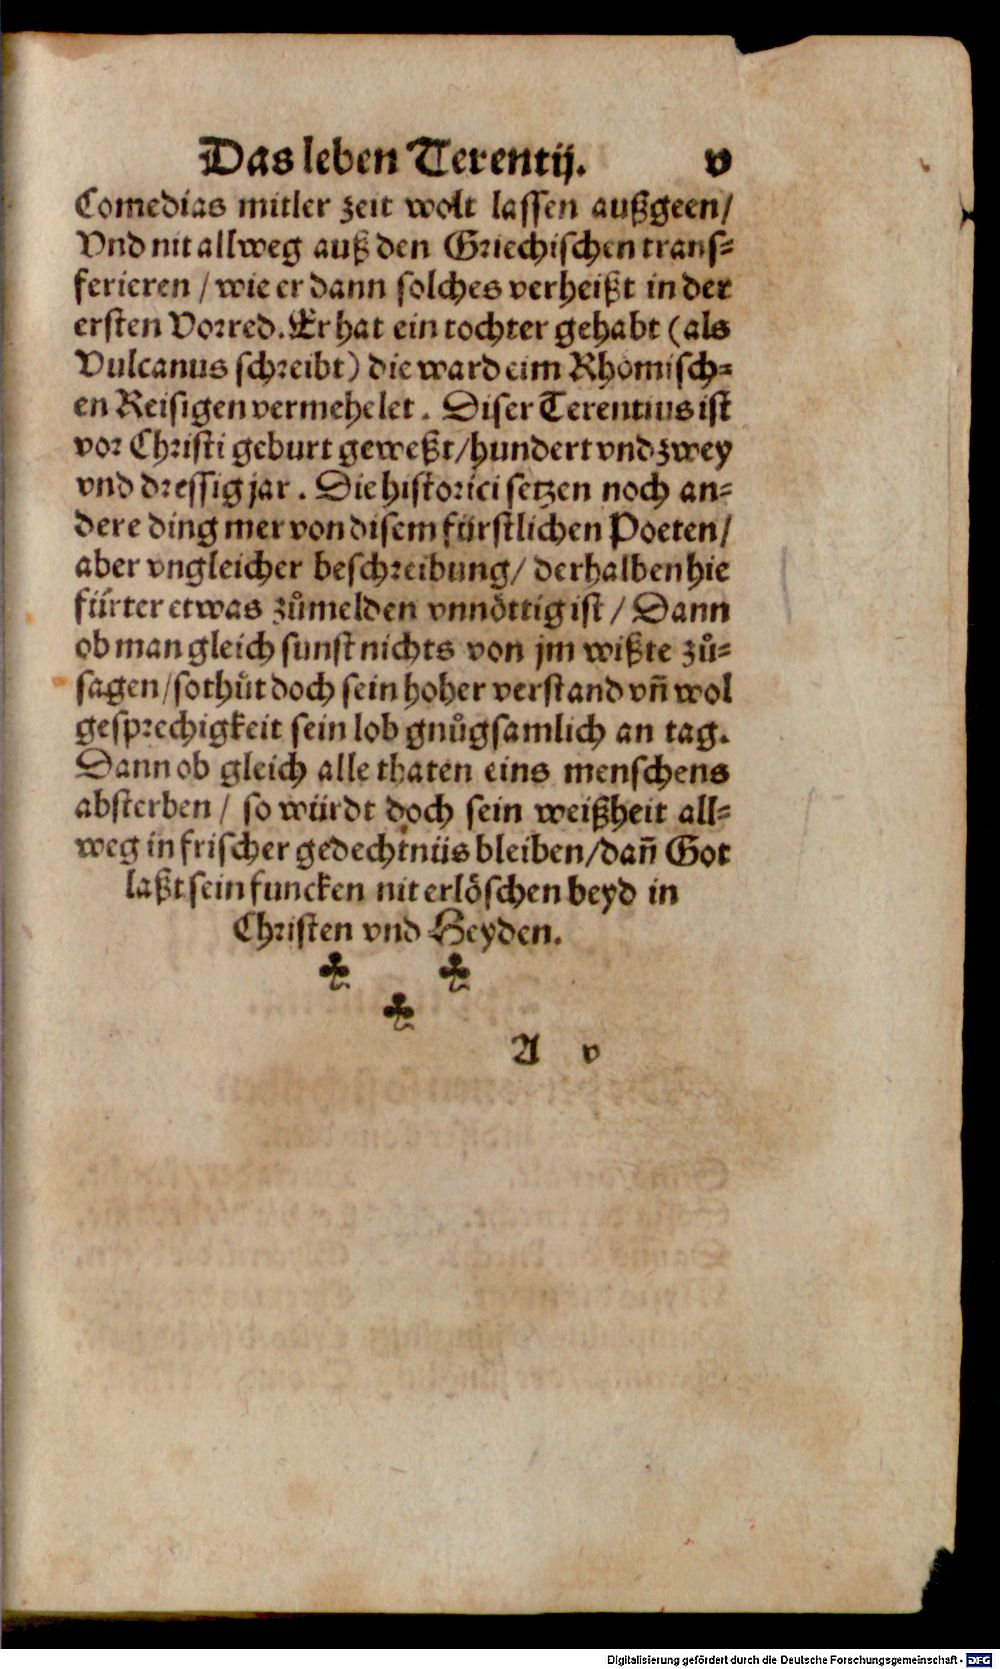 Das leben Terentij. v
Comedias mitler zeit wolt lassen außgeen/
Vnd nit allweg auß den Griechischen trans=
ferieren / wie er dann solches verheißt in der
ersten Vorred. Er hat ein tochter gehabt (als
Vulcanus schreibt) die ward eim Rhömisch=
en Reisigen vermehelet . Diser Terentius ist
vor Christi geburt geweßt/hundert vnd zwey
vnd dressig jar . Die historici setzen noch an=
dere ding mer von disem fürstlichen Poeten/
aber vngleicher beschreibung/ derhalben hie
fürter etwas zůmelden vnnöttig ist / Dann
ob man gleich sunst nichts von jm wißte zů=
sagen/so thůt doch sein hoher verstand vñ wol
gesprechigkeit sein lob gnůgsamlich an tag.
Dann ob gleich alle thaten eins menschens
absterben / so würdt doch sein weißheit all=
weg in frischer gedechtnüs bleiben/dañ Got
laßt sein funcken nit erlöschen beyd in
Christen vnd Heyden.
A v
Digitalisierung gefördert durch die Deutsche Forschungsgemeinschaft - DFG